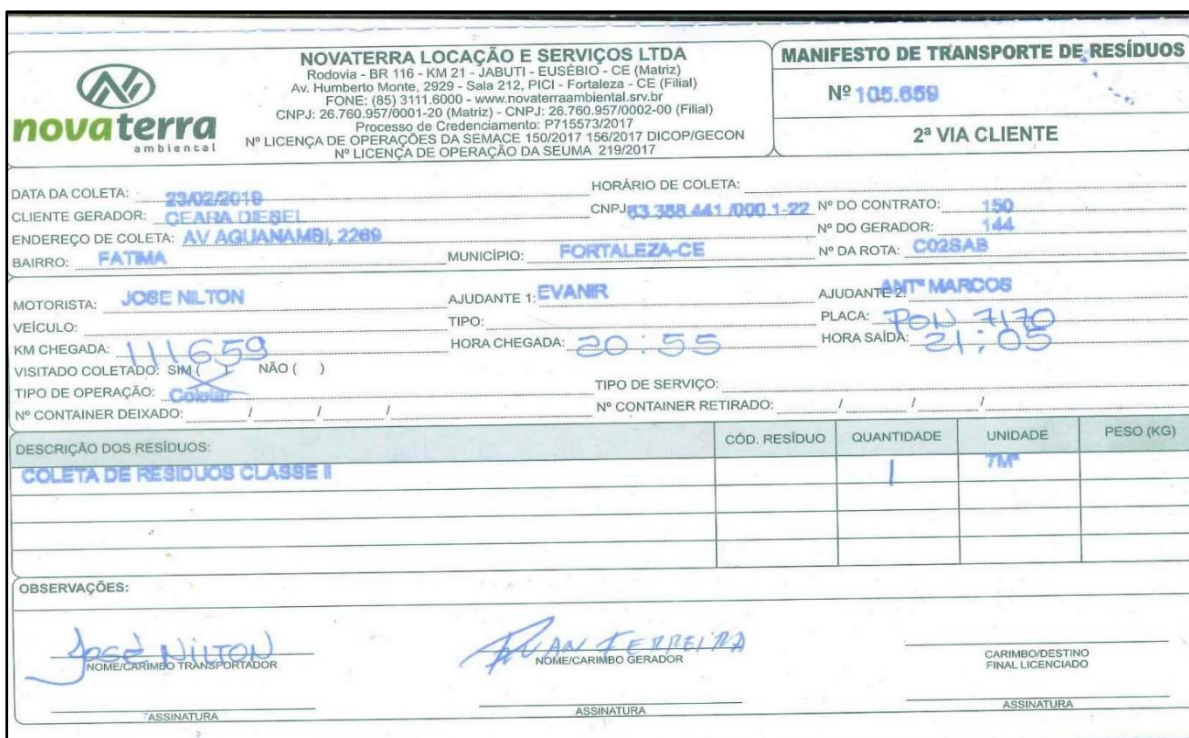 novaterra
ambiental
NOVATERRA LOCAÇÃO E SERVIÇOS LTDA
Rodovia - BR 116 - KM 21 - JABUTI - EUSÉBIO - CE (Matriz)
Av. Humberto Monte, 2929 - Sala 212, PICI - Fortaleza - CE (Filial)
FONE: (85) 3111.6000 - www.novaterraambiental.srv.br
CNPJ: 26.760.957/0001-20 (Matriz) - CNPJ: 26.760.957/0002-00 (Filial)
Processo de Credenciamento: P715573/2017
Nº LICENÇA DE OPERAÇÕES DA SEMACE 150/2017 156/2017 DICOP/GECON
Nº LICENÇA DE OPERAÇÃO DA SEUMA 219/2017
MANIFESTO DE TRANSPORTE DE RESÍDUOS
Nº 105.659
2ª VIA CLIENTE
DATA DA COLETA: 23/02/2019 HORÁRIO DE COLETA:
CLIENTE GERADOR: CEARA DIESEL CNPJ 63.388.441/000.1-22 Nº DO CONTRATO: 150
ENDEREÇO DE COLETA: AV AGUANAMBI, 2269 Nº DO GERADOR: 144
BAIRRO: FATIMA MUNICÍPIO: FORTALEZA-CE Nº DA ROTA: C02SAB
MOTORISTA: JOSE NILTON AJUDANTE 1: EVANIR AJUDANTE 2: ANTº MARCOS
VEÍCULO: TIPO: PLACA: PON 7170
KM CHEGADA: 111659 HORA CHEGADA: 20:55 HORA SAÍDA: 21:05
VISITADO COLETADO: SIM (X) NÃO ( )
TIPO DE OPERAÇÃO: Coletar TIPO DE SERVIÇO:
Nº CONTAINER DEIXADO: / / / Nº CONTAINER RETIRADO: / / /
DESCRIÇÃO DOS RESÍDUOS: CÓD. RESÍDUO QUANTIDADE UNIDADE PESO (KG)
COLETA DE RESIDUOS CLASSE II 1 7M³
OBSERVAÇÕES:
José Nilton RUAN FERREIRA
NOME/CARIMBO TRANSPORTADOR NOME/CARIMBO GERADOR CARIMBO/DESTINO
FINAL LICENCIADO
ASSINATURA ASSINATURA ASSINATURA